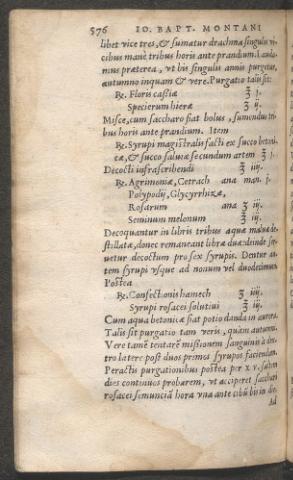 576 IO. BAPT. MONTANI
libet vice tres, & sumatur drachma singulis vi-
cibus mane tribus horis ante prandium. Lauda-
mus præterea, vt bis singulis annis purgetur,
autumno inquam & vere. Purgatio talis sit:
℞. Floris cassiæ ℥ j.
Specierum hieræ ʒ ij.
Misce, cum saccharo fiat bolus, sumendus tri-
bus horis ante prandium. Item
℞. Syrupi magistralis facti ex succo betoni-
cæ, & succo saluiæ secundum artem ℥ j.
Decocti infrascribendi ℥ iij.
℞. Agrimoniæ, Cetrach ana man. j.
Polypodij, Glycyrrhizæ,
Rosarum ana ℥ iij.
Seminum melonum ℥ iij.
Decoquantur in libris tribus aquæ maluæ de-
stillatæ, donec remaneant libræ duæ: deinde ser-
uetur decoctum pro sex syrupis. Dentur au-
tem syrupi vsque ad nonum vel duodecimum
Postea
℞. Confectionis hamech ʒ iiij.
Syrupi rosacei solutiui ℥ iij.
Cum aqua betonicæ fiat potio danda in aurora.
Talis sit purgatio tam veris, quàm autumni.
Vere tamē tentarē missionem sanguinis à dex-
tro latere post duos primos syrupos faciendam.
Peractis purgationibus postea per xv. saltem
dies continuos probarem, vt acciperet sacchari
rosacei semunciā hora vna ante cibū bis in die.
Ad